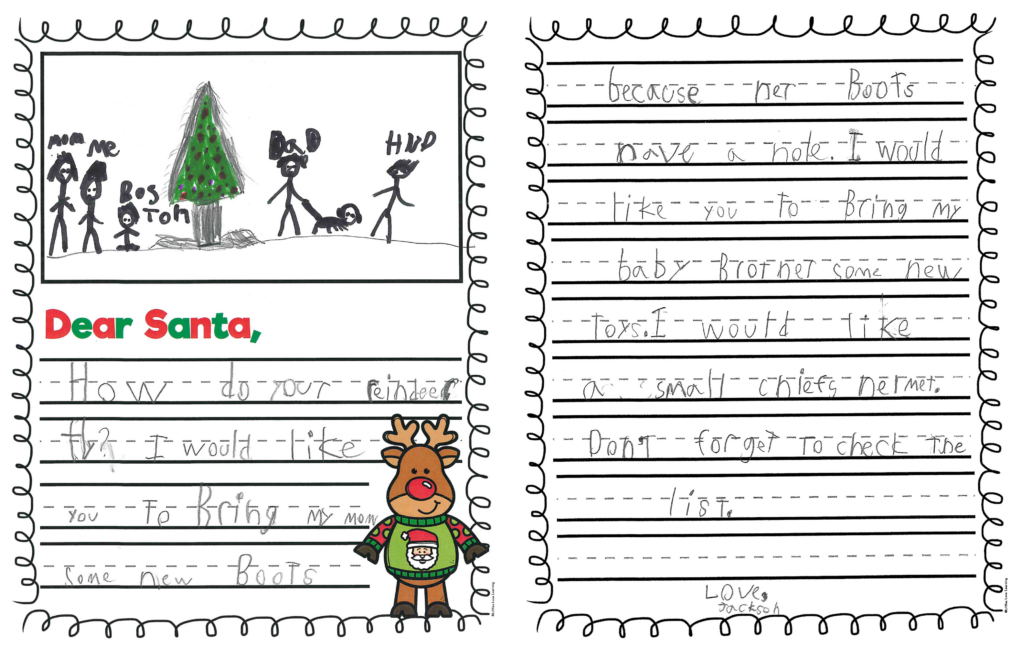 mom
Me
Bos
Ton
DaD
HND
Dear Santa,
How do your reindeer
fly? I would like
you To Bring My mom
some new Boots
because her Boots
have a hole. I would
like you To Bring My
baby Brother some new
Toys. I would like
a small chiefs helmet.
Don't forget To check The
list.
LOVE,
Jackson